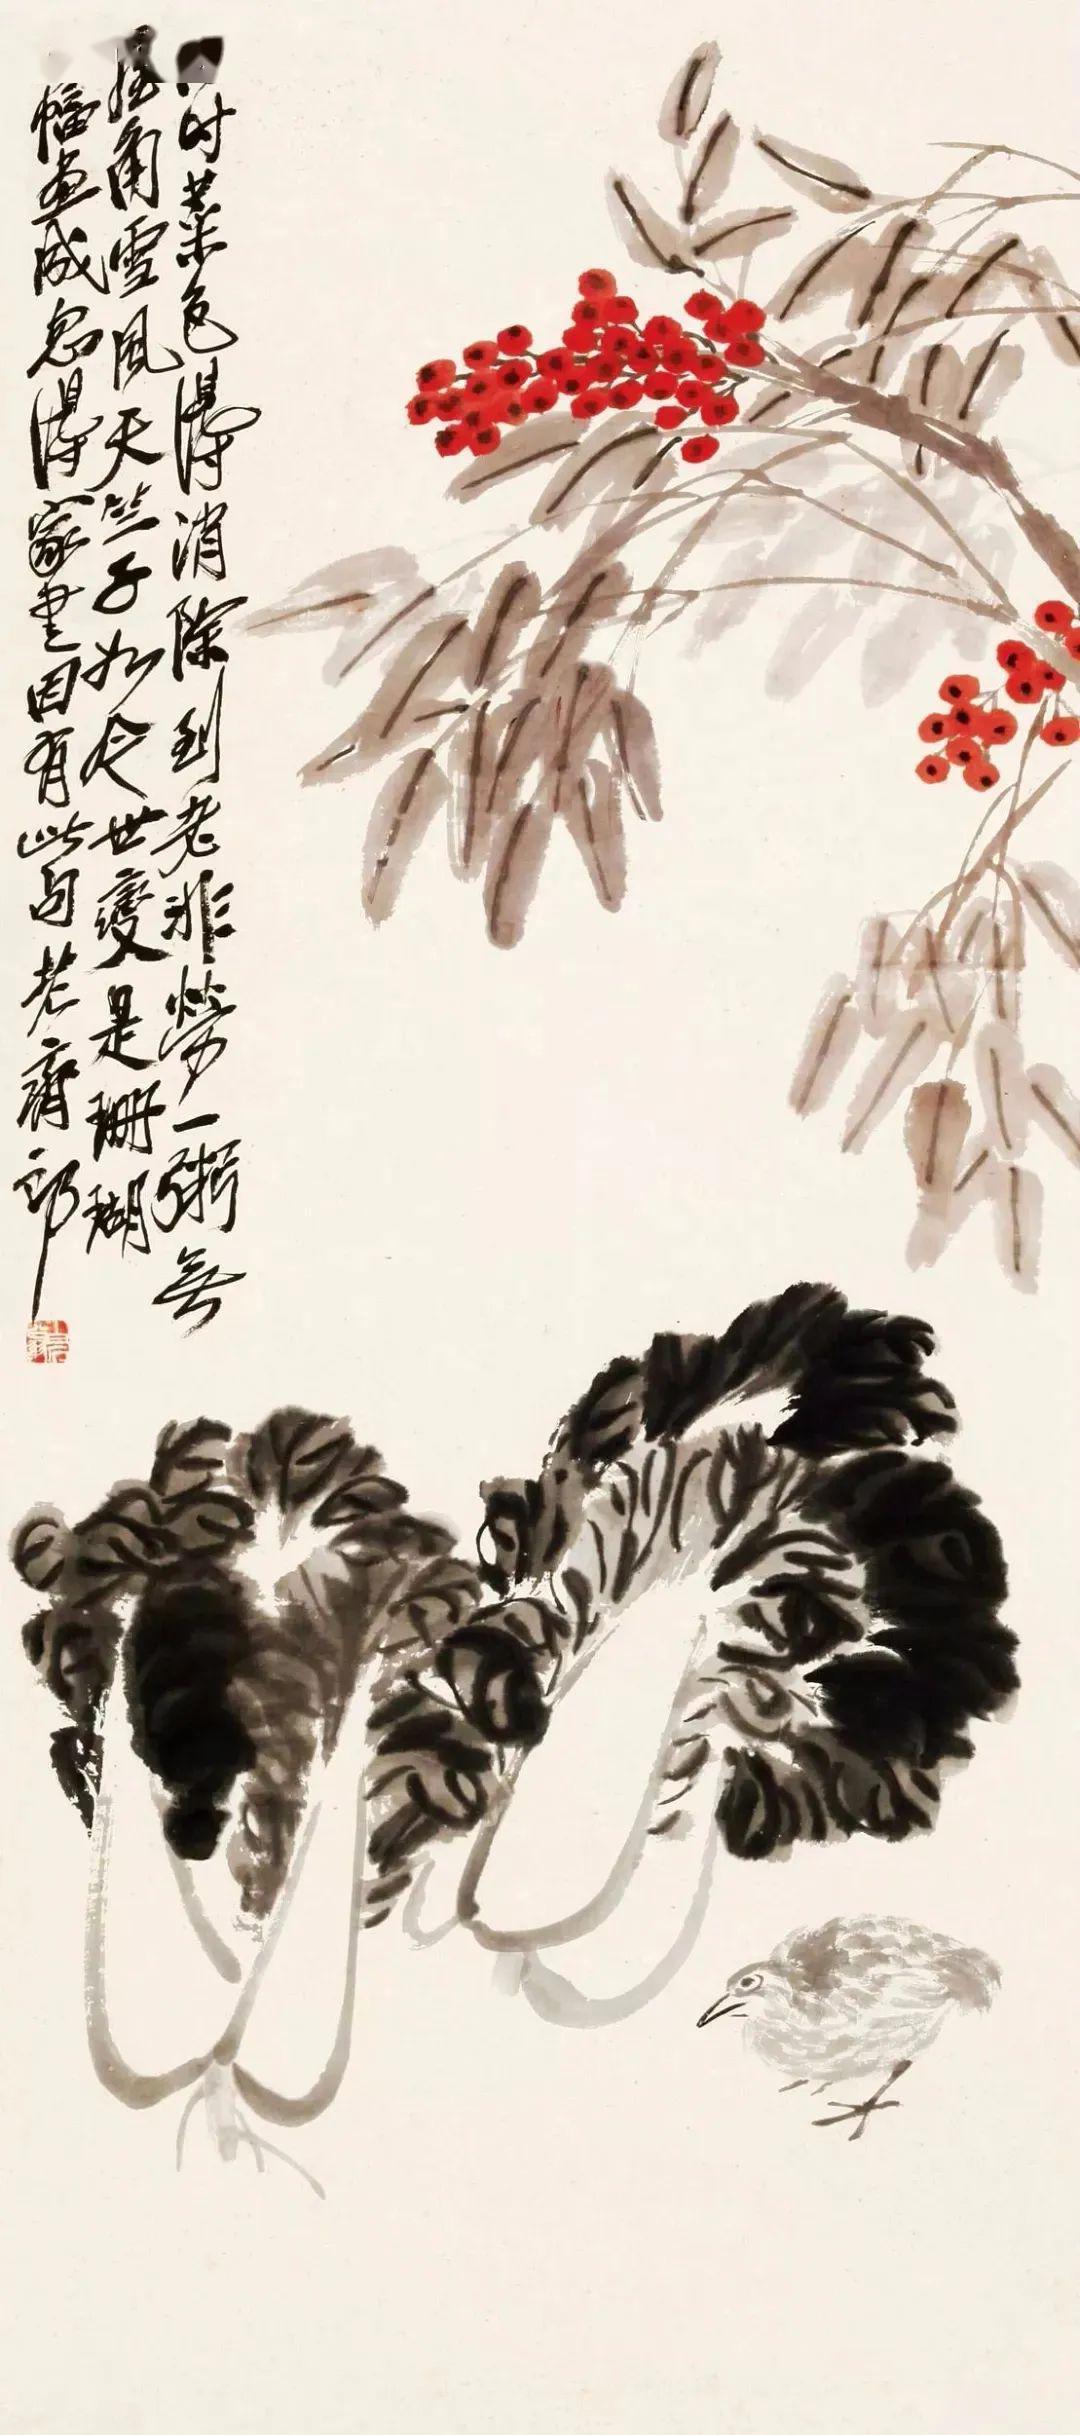 时菜色得消除到老非勞一粥無
屋角雪風天竺子如今世變是珊瑚
幅畫成忽得家書因有此句老齊郎